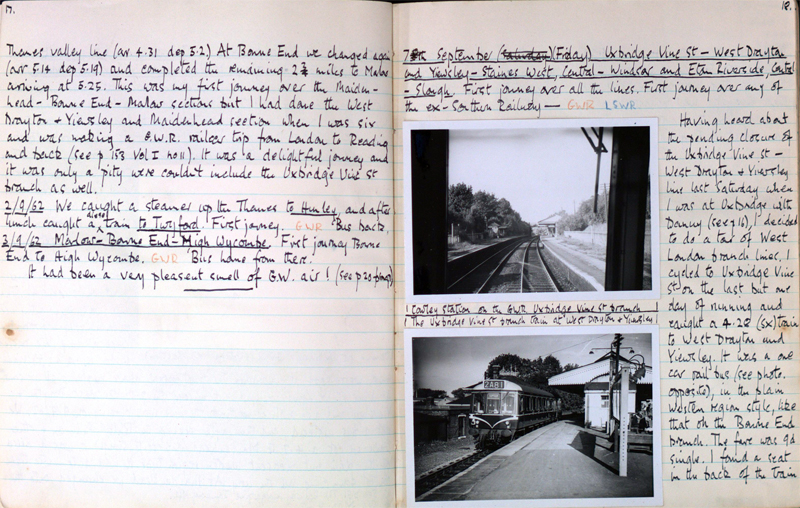 17.
Thames valley line (arr 4.31 dep 5.2) At Bourne End we changed again
(arr 5.14 dep 5.19) and completed the remaining 2¾ miles to Marlow
arriving at 5.25. This was my first journey over the Maiden-
head - Bourne End - Marlow sections but I had done the West
Drayton + Yiewsley and Maidenhead section when I was six
and was making a G.W.R. railcar trip from London to Reading
and back (see p 153 Vol I no 11). It was a delightful journey and
it was only a pity we couldn't include the Uxbridge Vine St
branch as well.
2/9/62 We caught a steamer up the Thames to Henley, and after
lunch caught a diesel train to Twyford. First journey. GWR 'Bus back.
3/9/62 Marlow - Bourne End - High Wycombe. First journey Bourne
End to High Wycombe. GWR 'Bus home from there.
It had been a very pleasent smell of G.W. air! (see p 20 )
18.
7th September (Saturday) (Friday) Uxbridge Vine St - West Drayton
and Yiewsley - Staines West, Central - Windsor and Eton Riverside, Central
- Slough. First journey over all the lines. First journey over any of
the ex-Southern Railway — GWR LSWR
Having heard about
the pending closure of
the Uxbridge Vine St -
West Drayton + Yiewsley
line last Saturday when
I was at Uxbridge with
Danny (see p16), I decided
to do a tour of West
London branch lines. I
cycled to Uxbridge Vine
St on the last but one
day of running and
caught a 4.28 (SX) train
to West Drayton and
Yiewsley. It was a one
car rail bus (see photo.
opposite), in the plain
western region style, like
that on the Bourne End
branch. The fare was 9d
single. I found a seat
in the back of the train
↑ Cowley station on the GWR Uxbridge Vine St branch
↓ The Uxbridge Vine St branch train at West Drayton + Yiewsley
2A81